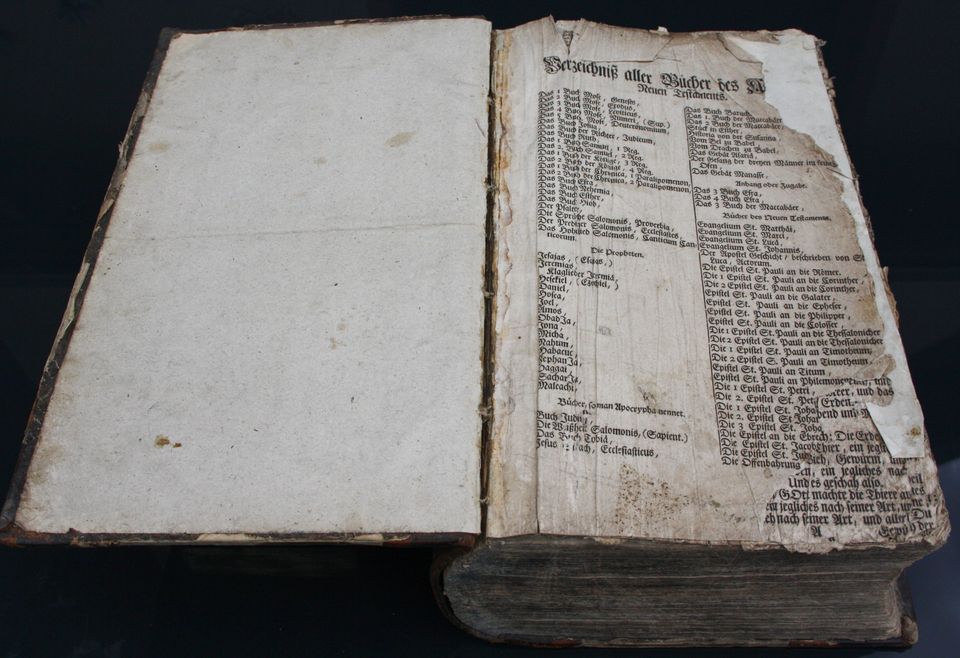 Verzeichniß aller Bücher des
Neuen Testaments.
Das 1 Buch Mose, Genesis,
Das 2 Buch Mose, Exodus,
Das 3 Buch Mose, Leviticus,
Das 4 Buch Mose, Numeri,
Das 5 Buch Mose, Deuteronomium,
Das Buch Josua,
Das Buch der Richter, Judicum,
Das Buch Ruth,
Das 1 Buch Samuel, 1 Reg.
Das 2. Buch Samuel, 2 Reg.
Das 1 Buch der Könige, 3 Reg.
Das 2 Buch der Könige, 4 Reg.
Das 1 Buch der Chronica, 1 Paralipomenon,
Das 2 Buch der Chronica, 2 Paralipomenon,
Das Buch Esra,
Das Buch Nehemia,
Das Buch Esther,
Das Buch Hiob,
Der Psalter,
Die Sprüche Salomonis, Proverbia,
Der Prediger Salomonis, Ecclesiastes,
Das Hohelied Salomonis, Canticum Can-
ticorum.
Die Propheten.
Jesajas, (Esaias,)
Jeremias,
Klaglieder Jeremiä,
Hesekiel, (Ezechiel,)
Daniel,
Hosea,
Joel,
Amos,
ObadJa,
Jona,
Micha,
Nahum,
Habacuc,
ZephanJa,
Haggai,
SacharJa,
Maleachi,
Bücher, so man Apocrypha nennet.
Buch Judith,
Die Weißheit Salomonis, (Sapient.)
Das Buch Tobiä,
Jesus Sirach, Ecclesiasticus,
Das Buch Baruch,
Das 1. Buch der Maccabäer,
Das 2 Buch der Maccabäer,
Stück in Esther,
Historia von der Susanna,
Vom Bel zu Babel
Vom Drachen zu Babel,
Das Gebät Asariä,
Der Gesang der dreyen Männer im feurigen
Ofen,
Das Gebät Manasse,
Anhang oder Zugabe.
Das 3 Buch Esra,
Das 4 Buch Esra,
Das 3 Buch der Maccabäer,
Bücher des Neuen Testaments,
Evangelium St. Matthäi,
Evangelium St. Marci,
Evangelium St. Lucä,
Evangelium St. Johannis,
Der Apostel Geschicht, beschrieben von St
Luca, Actorum.
Die Epistel St. Pauli an die Römer.
Die 1 Epistel St. Pauli an die Corinther,
Die 2 Epistel St. Pauli an die Corinther,
Epistel St. Pauli an die Galater,
Epistel St. Pauli an die Epheser,
Epistel St. Pauli an die Philipper,
Epistel St. Pauli an die Colosser,
Die 1 Epistel St. Pauli an die Thessalonicher
Die 2 Epistel St. Pauli an die Thessalonicher
Die 1 Epistel St. Pauli an Timotheum,
Die 2 Epistel St. Pauli an Timotheum,
Epistel St. Pauli an Titum,
Epistel St. Pauli an Philemonem, und
Die 1 Epistel St. Petri, und das
Die 2. Epistel St. Pet Erden.
Die 1 Epistel St. Joha bend und
Die 2. Epistel St. Johan
Die 3 Epistel St. Joha
Die Epistel an die Ebreer: Die Erde
Die Epistel St. Jacobi Thier, ein jegl
Die Epistel St. Ju Gewürm, und
Die Offenbahrung ein jegliches nach
Und es geschah also.
GOtt machte die Thiere
jegliches nach seiner Art,
nach seiner Art, und aller Du
A der